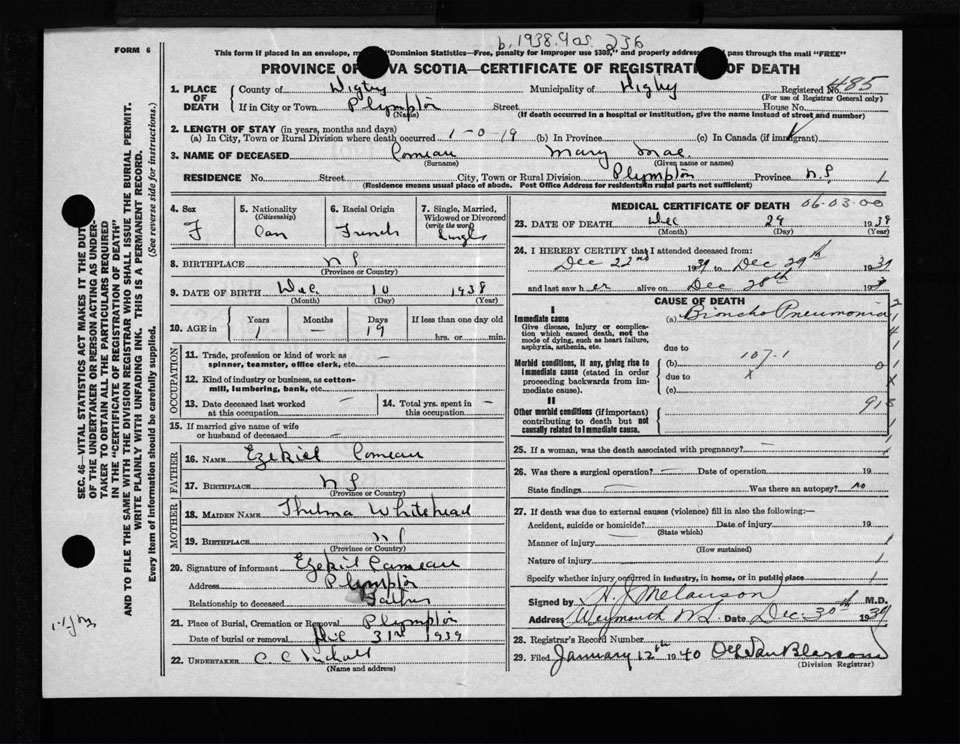 b. 1938.9 as 236
FORM 6
This form if placed in an envelope, "Dominion Statistics—Free, penalty for improper use $300," and properly address pass through the mail "FREE"
PROVINCE OF VA SCOTIA—CERTIFICATE OF REGISTRATION OF DEATH
1. PLACE OF DEATH
County of Digby Municipality of Digby Registered No. 485
(For use of Registrar General only)
If in City or Town Plympton Street House No.
(Name) (If death occurred in a hospital or institution, give the name instead of street and number)
2. LENGTH OF STAY (in years, months and days)
(a) In City, Town or Rural Division where death occurred 1-0-19 (b) In Province (c) In Canada (if immigrant)
3. NAME OF DECEASED Comeau Mary Mae
(Surname) (Given name or names)
RESIDENCE No. Street City, Town or Rural Division Plympton Province N.S 1
(Residence means usual place of abode. Post Office Address for residents in rural parts not sufficient)
4. Sex F
5. Nationality (Citizenship) Can
6. Racial Origin French
7. Single, Married, Widowed or Divorced (write the word) Single
8. BIRTHPLACE N S
(Province or Country)
9. DATE OF BIRTH Dec 10 1938
(Month) (Day) (Year)
10. AGE in Years 1 Months — Days 19 If less than one day old hrs. or min.
OCCUPATION
11. Trade, profession or kind of work as spinner, teamster, office clerk, etc. —
12. Kind of industry or business, as cotton-mill, lumbering, bank, etc. —
13. Date deceased last worked at this occupation —
14. Total yrs. spent in this occupation —
15. If married give name of wife or husband of deceased —
FATHER
16. NAME Ezekiel Comeau
17. BIRTHPLACE N S
(Province or Country)
MOTHER
18. MAIDEN NAME Thelma Whitehead
19. BIRTHPLACE N S
(Province or Country)
20. Signature of informant Ezekiel Comeau
Address Plympton
Relationship to deceased Father
21. Place of Burial, Cremation or Removal Plympton
Date of burial or removal Dec 31st 1939
22. UNDERTAKER C. C.
(Name and address)
MEDICAL CERTIFICATE OF DEATH 06-03-00
23. DATE OF DEATH Dec 29 1939
(Month) (Day) (Year)
24. I HEREBY CERTIFY that I attended deceased from:
Dec 22nd 1939 to Dec 29th 1939
and last saw her alive on Dec 28th 193
CAUSE OF DEATH
I
Immediate cause (a) Broncho Pneumonia
Give disease, injury or complication which caused death, not the mode of dying, such as heart failure, asphyxia, asthenia, etc.
due to
Morbid conditions, if any, giving rise to immediate cause (stated in order proceeding backwards from immediate cause).
(b) 107.1
due to x
(c)
II
Other morbid conditions (if important) contributing to death but not causally related to immediate cause.
913
25. If a woman, was the death associated with pregnancy? —
26. Was there a surgical operation? — Date of operation 19
State findings — Was there an autopsy? no
27. If death was due to external causes (violence) fill in also the following:—
Accident, suicide or homicide? Date of injury 19
(State which)
Manner of injury
(How sustained)
Nature of injury
Specify whether injury occurred in industry, in home, or in public place
Signed by H. J. Melanson M.D.
Address Weymouth N.S. Date Dec 30th 1939
28. Registrar's Record Number
29. Filed January 12th 1940
(Division Registrar)
SEC. 46—VITAL STATISTICS ACT MAKES IT THE DUTY
OF THE UNDERTAKER OR PERSON ACTING AS UNDER-
TAKER TO OBTAIN ALL THE PARTICULARS REQUIRED
IN THE "CERTIFICATE OF REGISTRATION OF DEATH"
AND TO FILE THE SAME WITH THE DIVISION REGISTRAR WHO SHALL ISSUE THE BURIAL PERMIT.
WRITE PLAINLY WITH UNFADING INK. THIS IS A PERMANENT RECORD.
Every item of information should be carefully supplied. (See reverse side for instructions.)